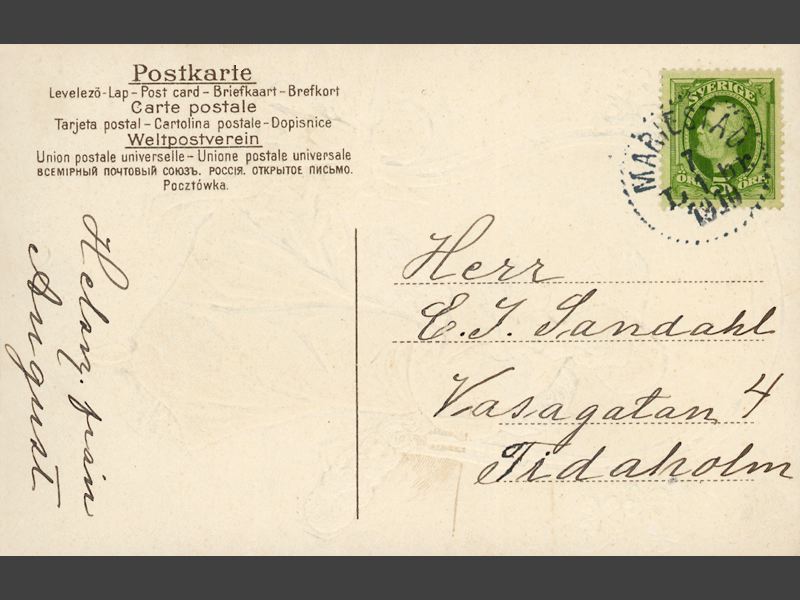 Postkarte
Levelező-Lap – Post card – Briefkaart – Brefkort
Carte postale
Tarjeta postal – Cartolina postale – Dopisnice
Weltpostverein
Union postale universelle – Unione postale universale
ВСЕМІРНЫЙ ПОЧТОВЫЙ СОЮЗЪ. РОССІЯ. ОТКРЫТОЕ ПИСЬМО.
Pocztówka.
SVERIGE
MARIESTAD
ÖRE
Herr
E. J. Sandahl
Vasagatan 4
Tidaholm
från
August